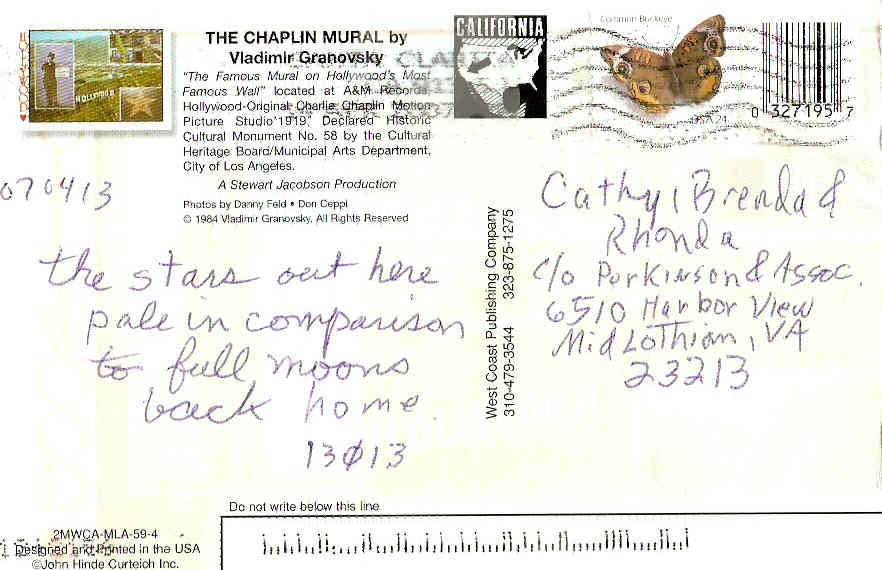 THE CHAPLIN MURAL by
Vladimir Granovsky
"The Famous Mural on Hollywood's Most
Famous Wall" located at A&M Records,
Hollywood-Original Charlie Chaplin Motion
Picture Studio 1919. Declared Historic
Cultural Monument No. 58 by the Cultural
Heritage Board/Municipal Arts Department,
City of Los Angeles.
A Stewart Jacobson Production
Photos by Danny Feld • Don Ceppi
© 1984 Vladimir Granovsky, All Rights Reserved
HOLLYWOOD
CALIFORNIA
Common Buckeye
USA 24
0 327195 7
070413
the stars out here
pale in comparison
to full moons
back home.
13013
West Coast Publishing Company
310-479-3544 323-875-1275
Cathy, Brenda &
Rhonda
c/o Parkinson & Assoc.
6510 Harbor View
Midlothian, VA
23213
Do not write below this line
2MWCA-MLA-59-4
Designed and Printed in the USA
©John Hinde Curteich Inc.